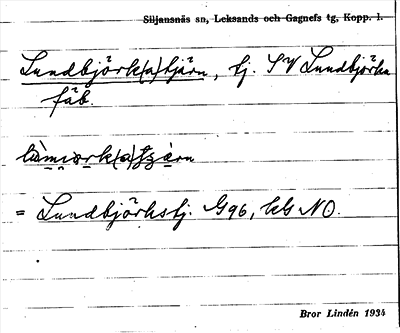 Siljansnäs sn, Leksands och Gagnefs tg, Kopp. l.
Lundbjörk(a)tjärn, tj. SV Lundbjörka
fäb.
= Lundbjörkstj. G96, kbl NO.
Bror Lindén 1934